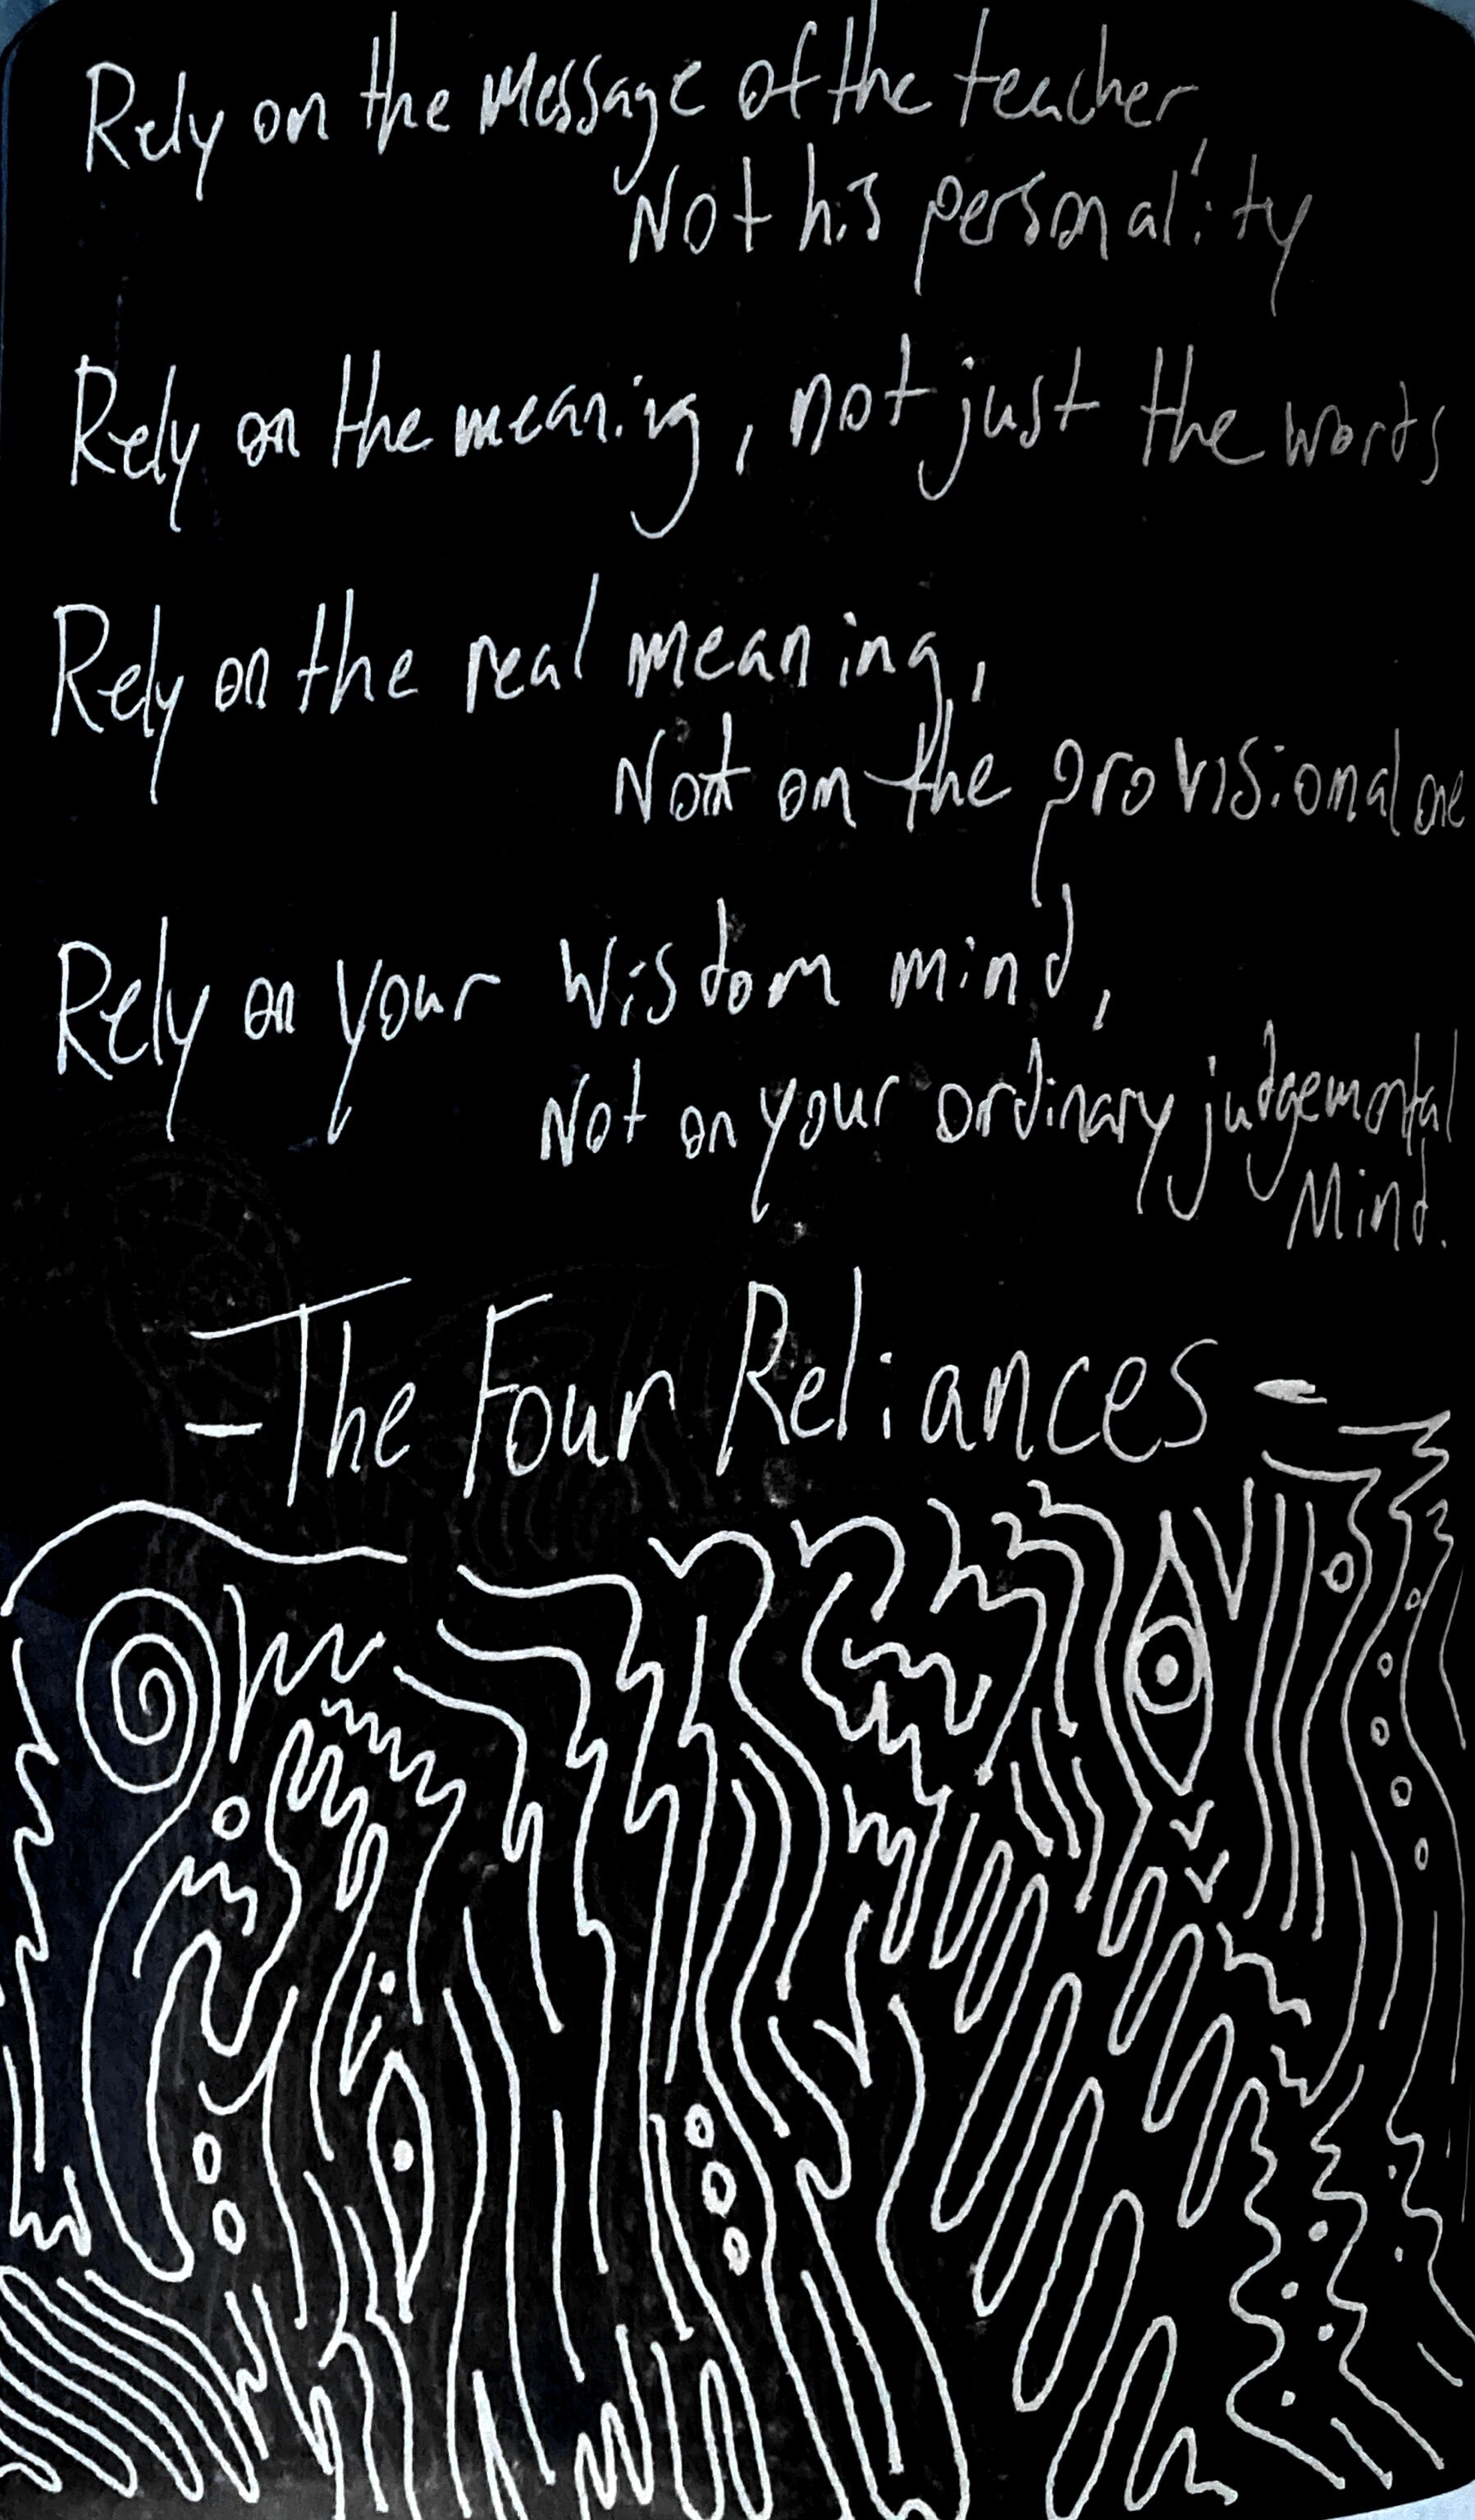 Rely on the Message of the teacher,
Not his personality
Rely on the meaning, not just the words
Rely on the real meaning,
Not on the provisional one
Rely on your Wisdom mind,
Not on your ordinary judgemental
Mind.
-The Four Reliances-